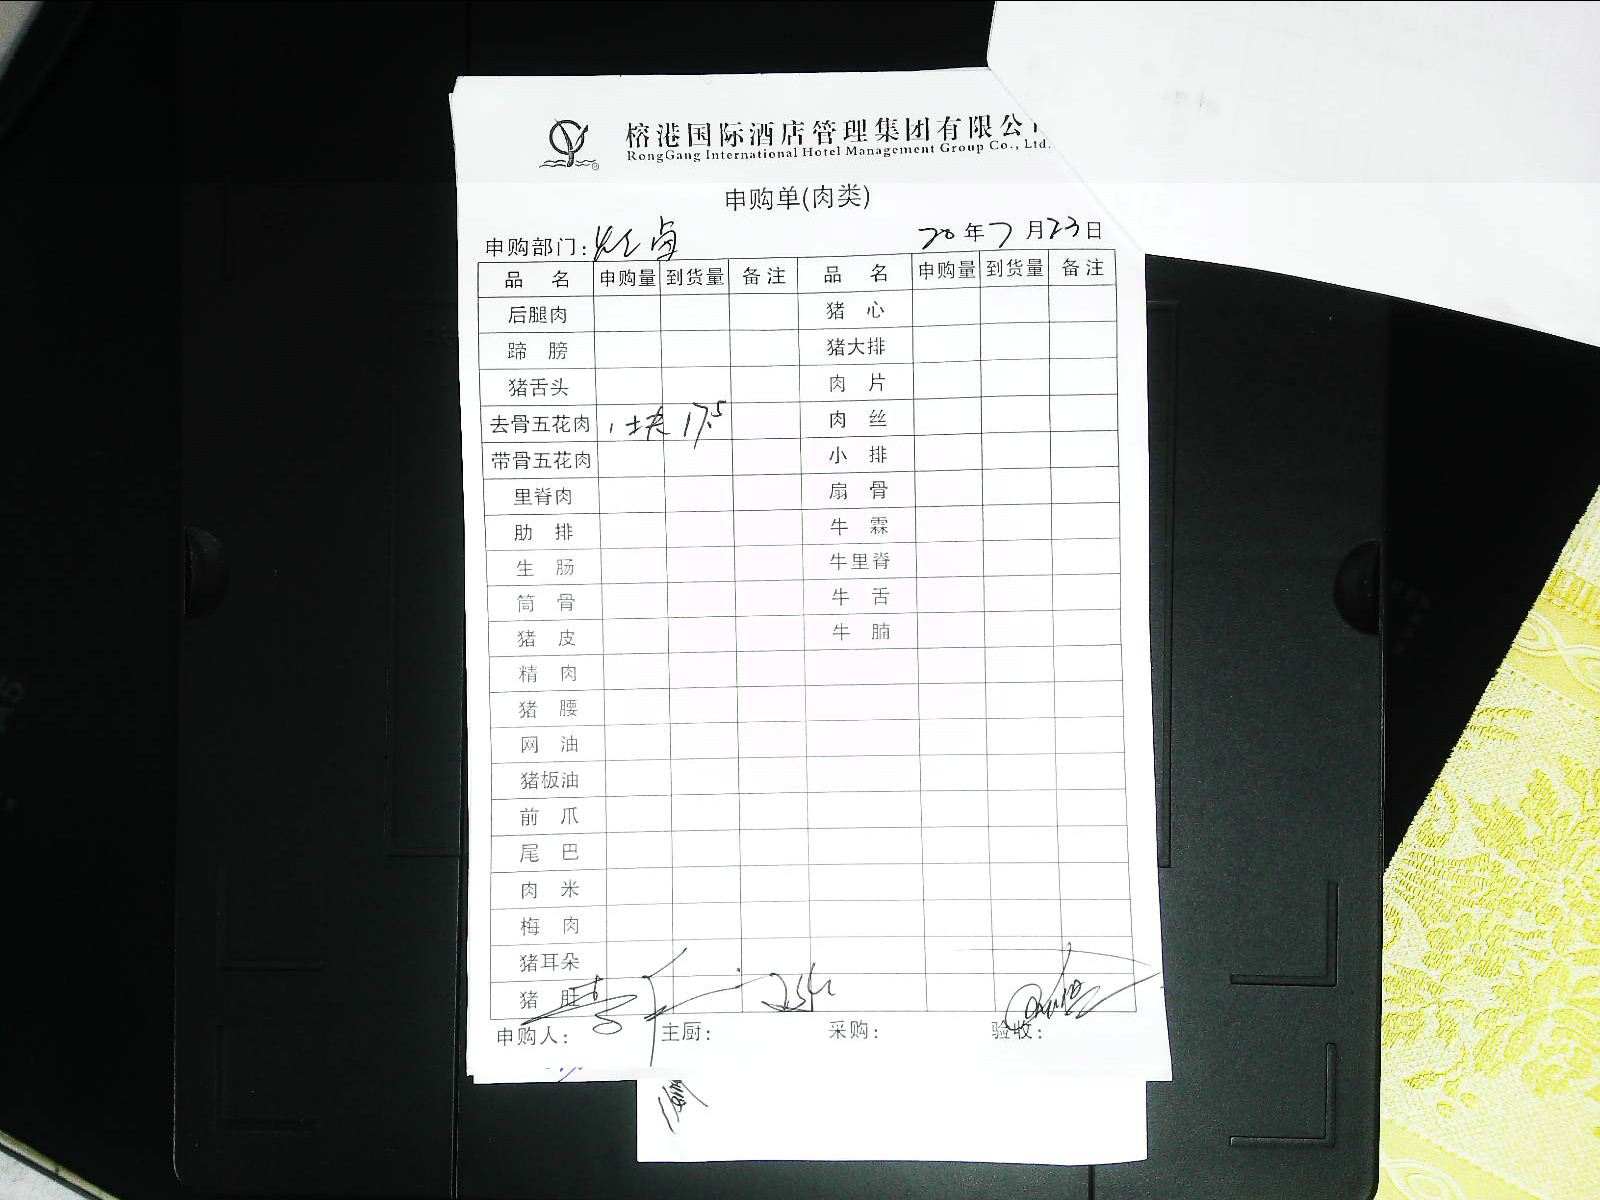 榕港国际酒店管理集团有限公
RongGang International Hotel Management Group Co., Ltd.
申购单(肉类)
申购部门: 20年7月23日
品 名 申购量 到货量 备注 品 名 申购量 到货量 备注
后腿肉 猪 心
蹄 膀 猪大排
猪舌头 肉 片
去骨五花肉 1块 17.5 肉 丝
带骨五花肉 小 排
里脊肉 扇 骨
肋 排 牛 霖
生 肠 牛里脊
筒 骨 牛 舌
猪 皮 牛 腩
精 肉
猪 腰
网 油
猪板油
前 爪
尾 巴
肉 米
梅 肉
猪耳朵
猪 肚
申购人: 主厨: 采购: 验收: